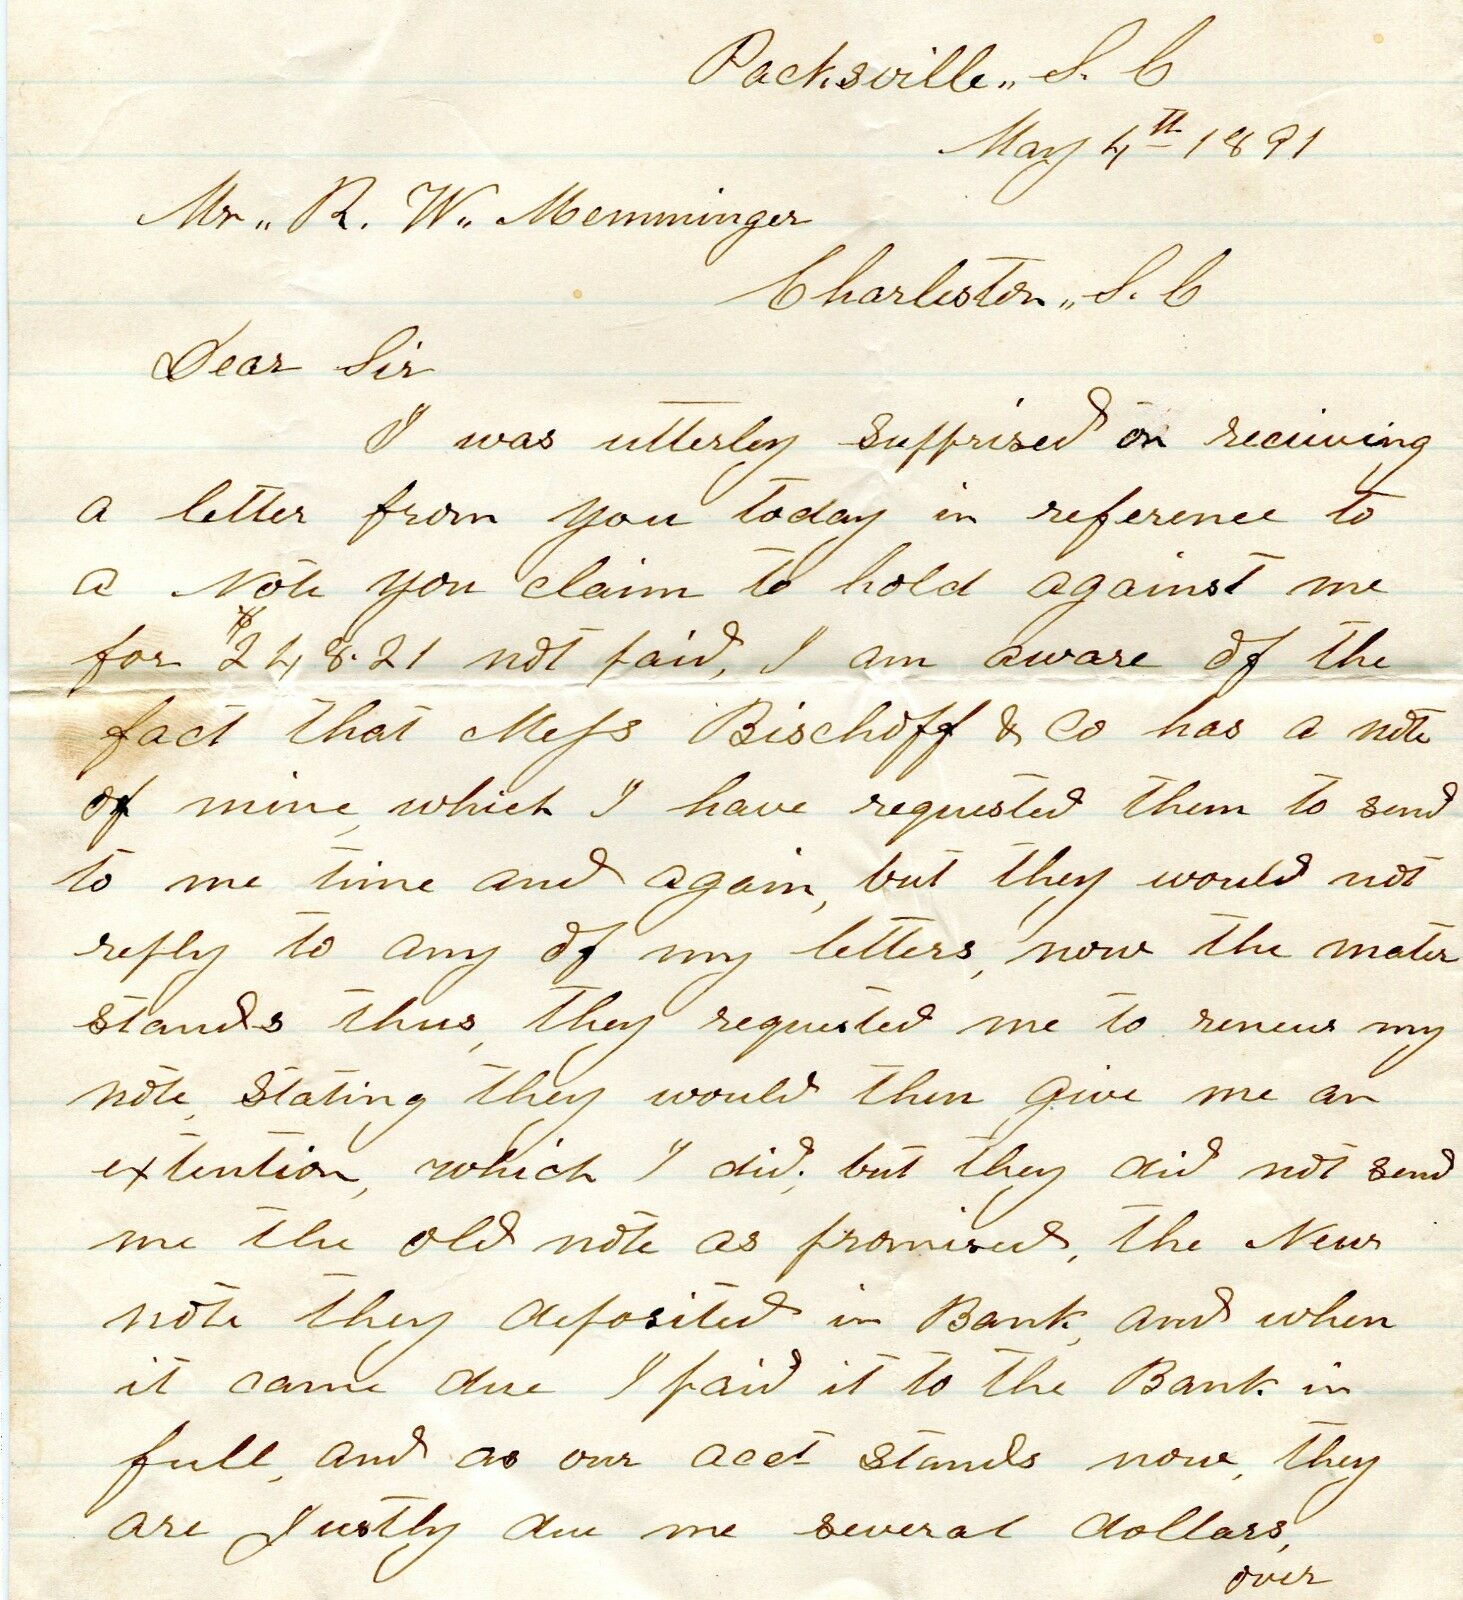 Packsville,, S. C
May 4th 1891
Mr,, R. W,, Memminger
Charleston,, S. C
Dear Sir
I was utterley supprised on reciuving
a letter from you today in reference to
a Note you claim to hold against me
for $248.21 not paid, I am aware of the
fact that Mess Bischoff & Co has a note
of mine, which I have requested them to send
to me time and again, but they would not
reply to any of my letters, now the mater
stands thus, they requested me to renew my
note, stating they would then give me an
extention, which I did, but they did not send
me the old note as promised, the New
note they deposited in Bank, and when
it came due I paid it to the Bank in
full, and as our acct stands now, they
are Justly due me several dollars,
over